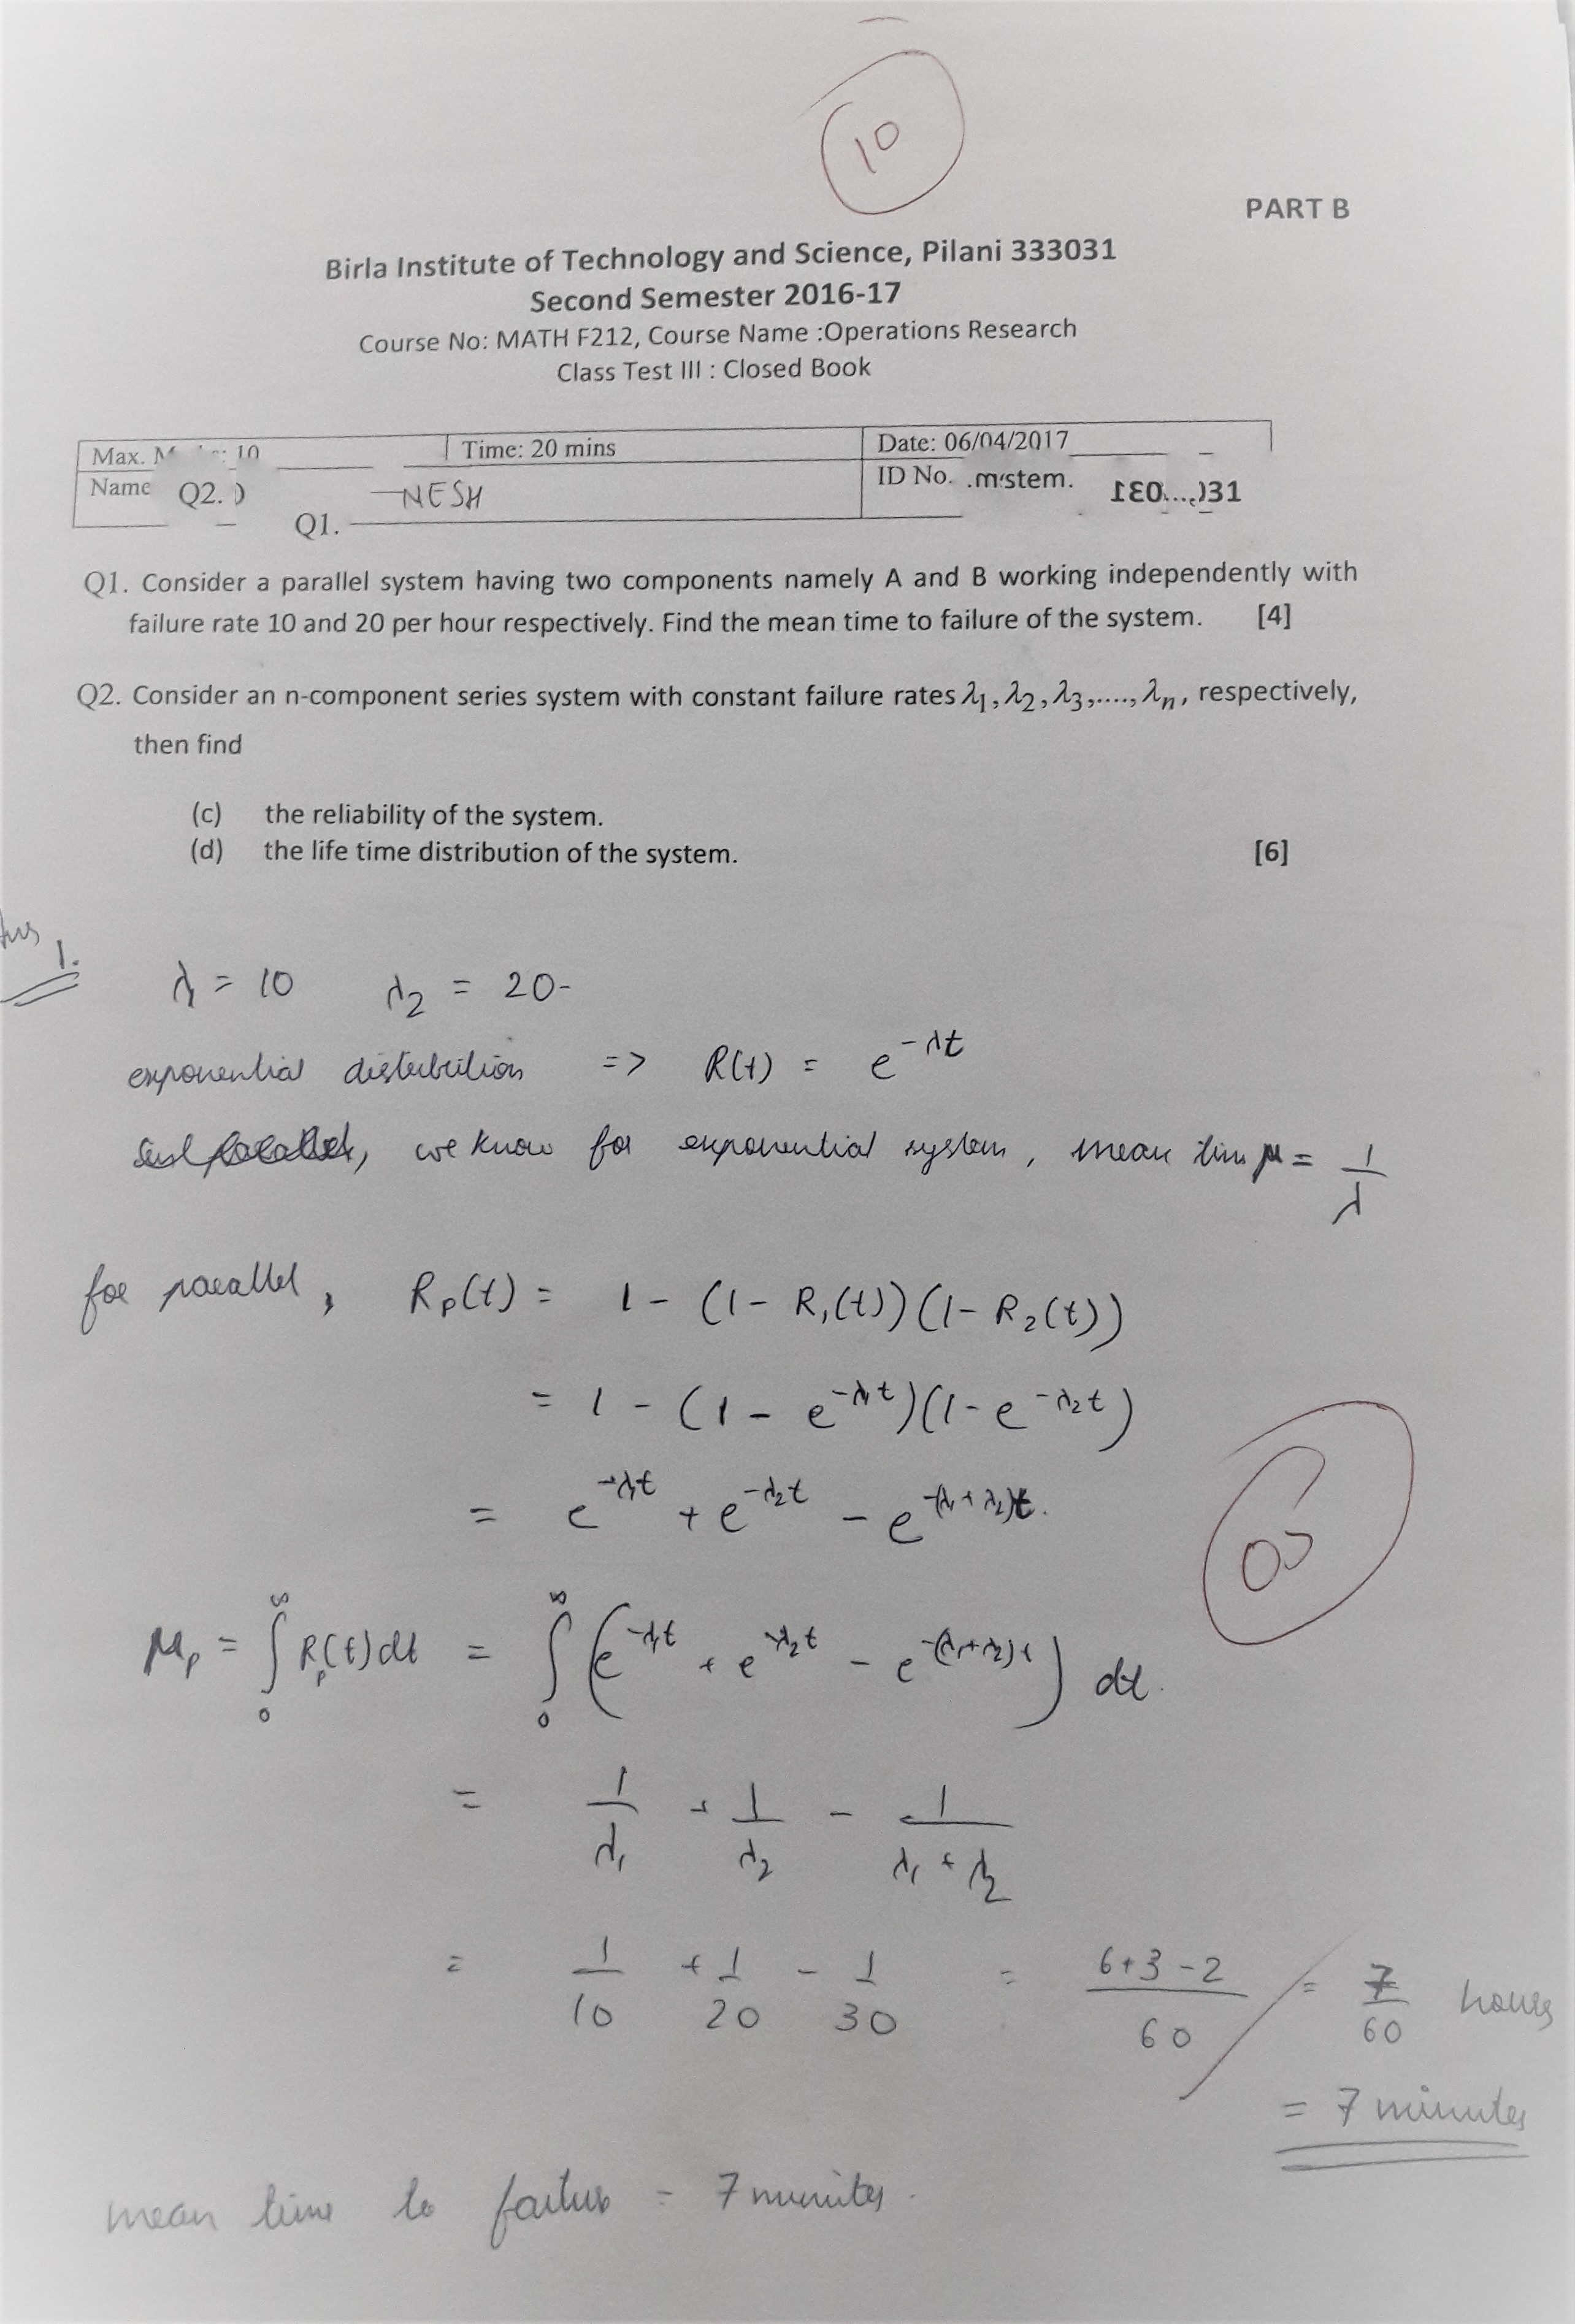 10
PART B
Birla Institute of Technology and Science, Pilani 333031
Second Semester 2016-17
Course No: MATH F212, Course Name :Operations Research
Class Test III : Closed Book
Max. : 10 Time: 20 mins Date: 06/04/2017
Name Q2. NESH ID No. stem. 031
Q1.
Q1. Consider a parallel system having two components namely A and B working independently with
failure rate 10 and 20 per hour respectively. Find the mean time to failure of the system. [4]
Q2. Consider an n-component series system with constant failure rates λ1, λ2, λ3,...., λn, respectively,
then find
(c) the reliability of the system.
(d) the life time distribution of the system. [6]
Ans
1.
λ1 = 10 λ2 = 20-
exponential distribution => R(t) = e^-λt
we know for exponential system, mean time μ = 1/λ
for parallel, Rp(t) = 1 - (1 - R1(t))(1 - R2(t))
= 1 - (1 - e^-λ1t)(1 - e^-λ2t)
= e^-λ1t + e^-λ2t - e^-(λ1+λ2)t.
μp = ∫0^∞ Rp(t)dt = ∫0^∞ (e^-λ1t + e^-λ2t - e^-(λ1+λ2)t) dt.
= 1/λ1 + 1/λ2 - 1/(λ1 + λ2)
= 1/10 + 1/20 - 1/30 = (6+3-2)/60 = 7/60 hours
= 7 minutes
mean time to failure = 7 minutes.